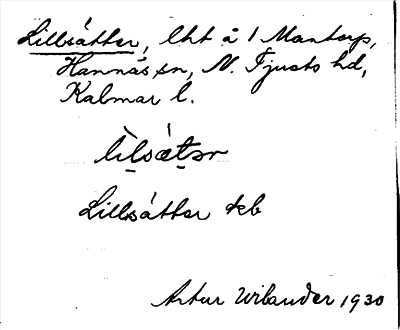 Lillsätter, lht å 1 Mantorp,
Hannäs sn, N. Tjusts hd,
Kalmar l.
Lillsätter
Artur Wilander 1930